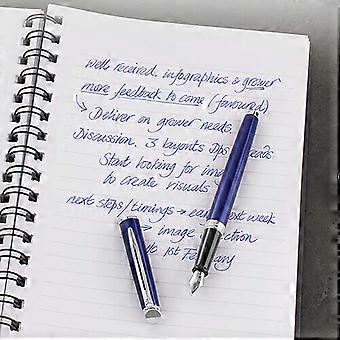 well received. infographics & grower
more feedback to come (favoured)
↳ Deliver on grower needs.
Discussion. 3 layouts Dps
Start looking for
to create visuals
next steps/timings → week
→ image
1st February